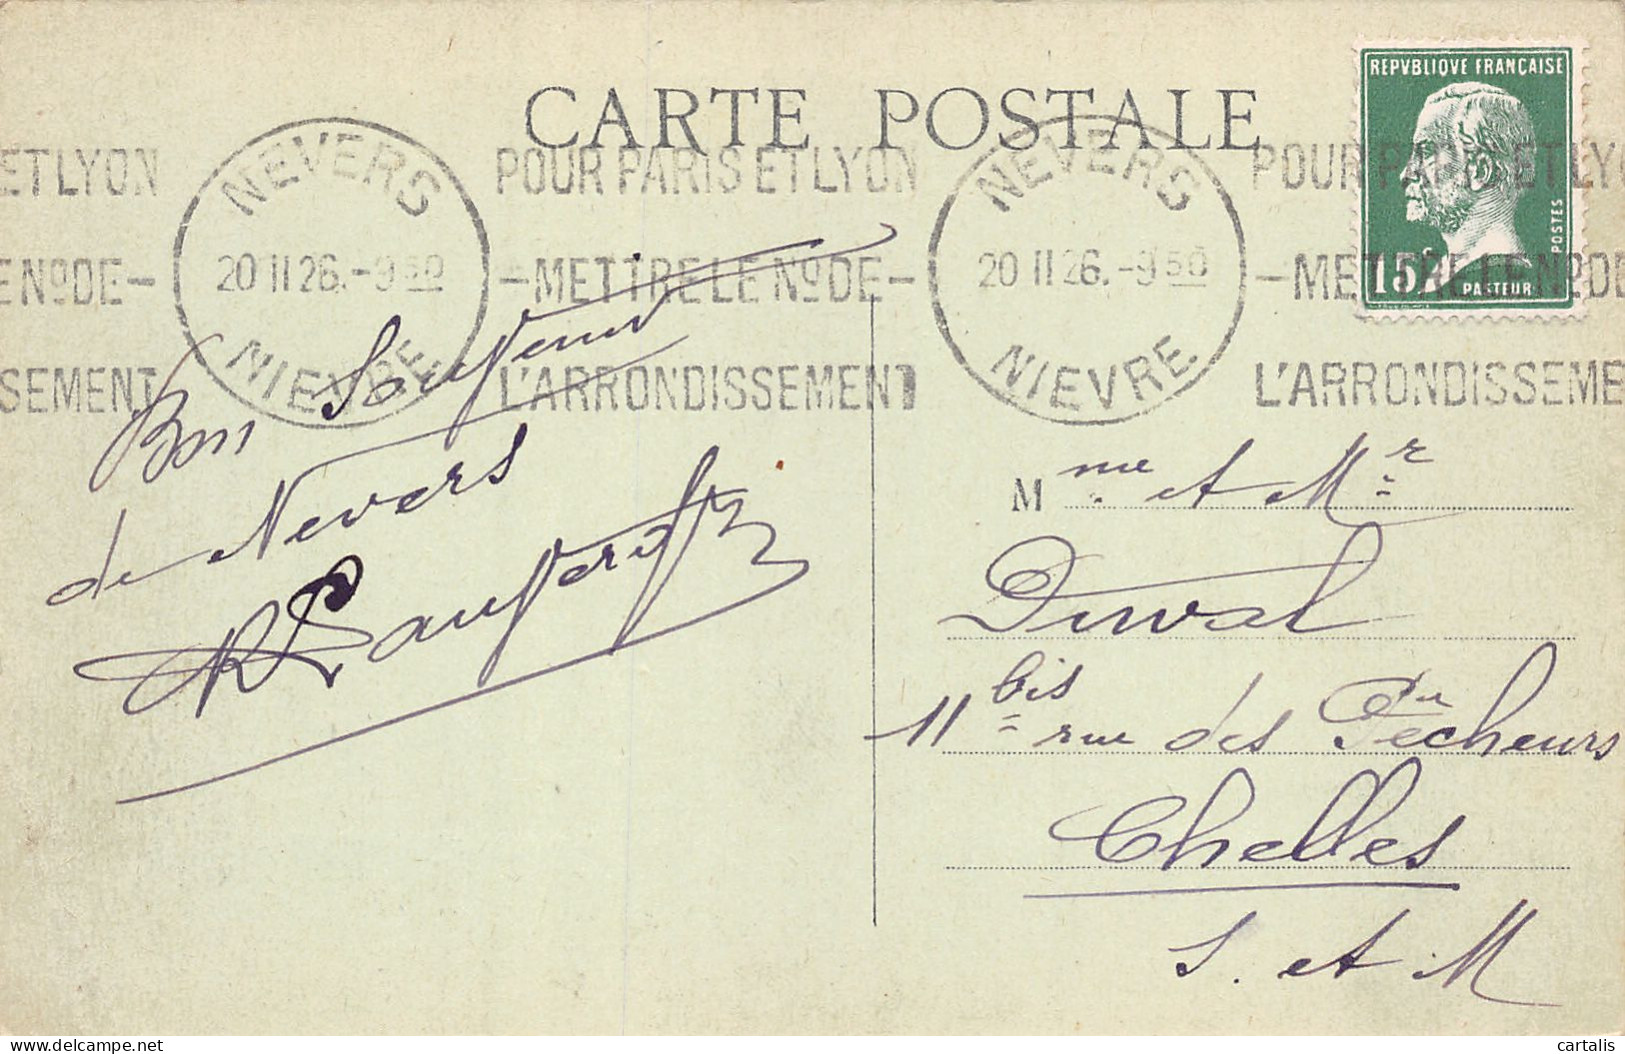 CARTE POSTALE
REPVBLIQVE FRANÇAISE
POSTES
15c
PASTEUR
ET LYON
E No DE -
SEMENT
NEVERS
20 II 26. - 9 50
NIEVRE
POUR PARIS ET LYON
- METTRE LE No DE -
L'ARRONDISSEMENT
NEVERS
20 II 26. - 9 50
NIEVRE
POUR PARIS ET LYON
- METTRE LE No DE
L'ARRONDISSEME
Bon Souvenir
de Nevers
Mme et Mr
Duval
11 bis rue des Pêcheurs
Chelles
S. et M
Delcampe.net
cartalis